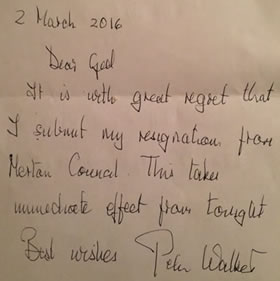 2 March 2016
Dear Ged
It is with great regret that
I submit my resignation from
Merton Council. This takes
immediate effect from tonight
Best wishes Peter Walker